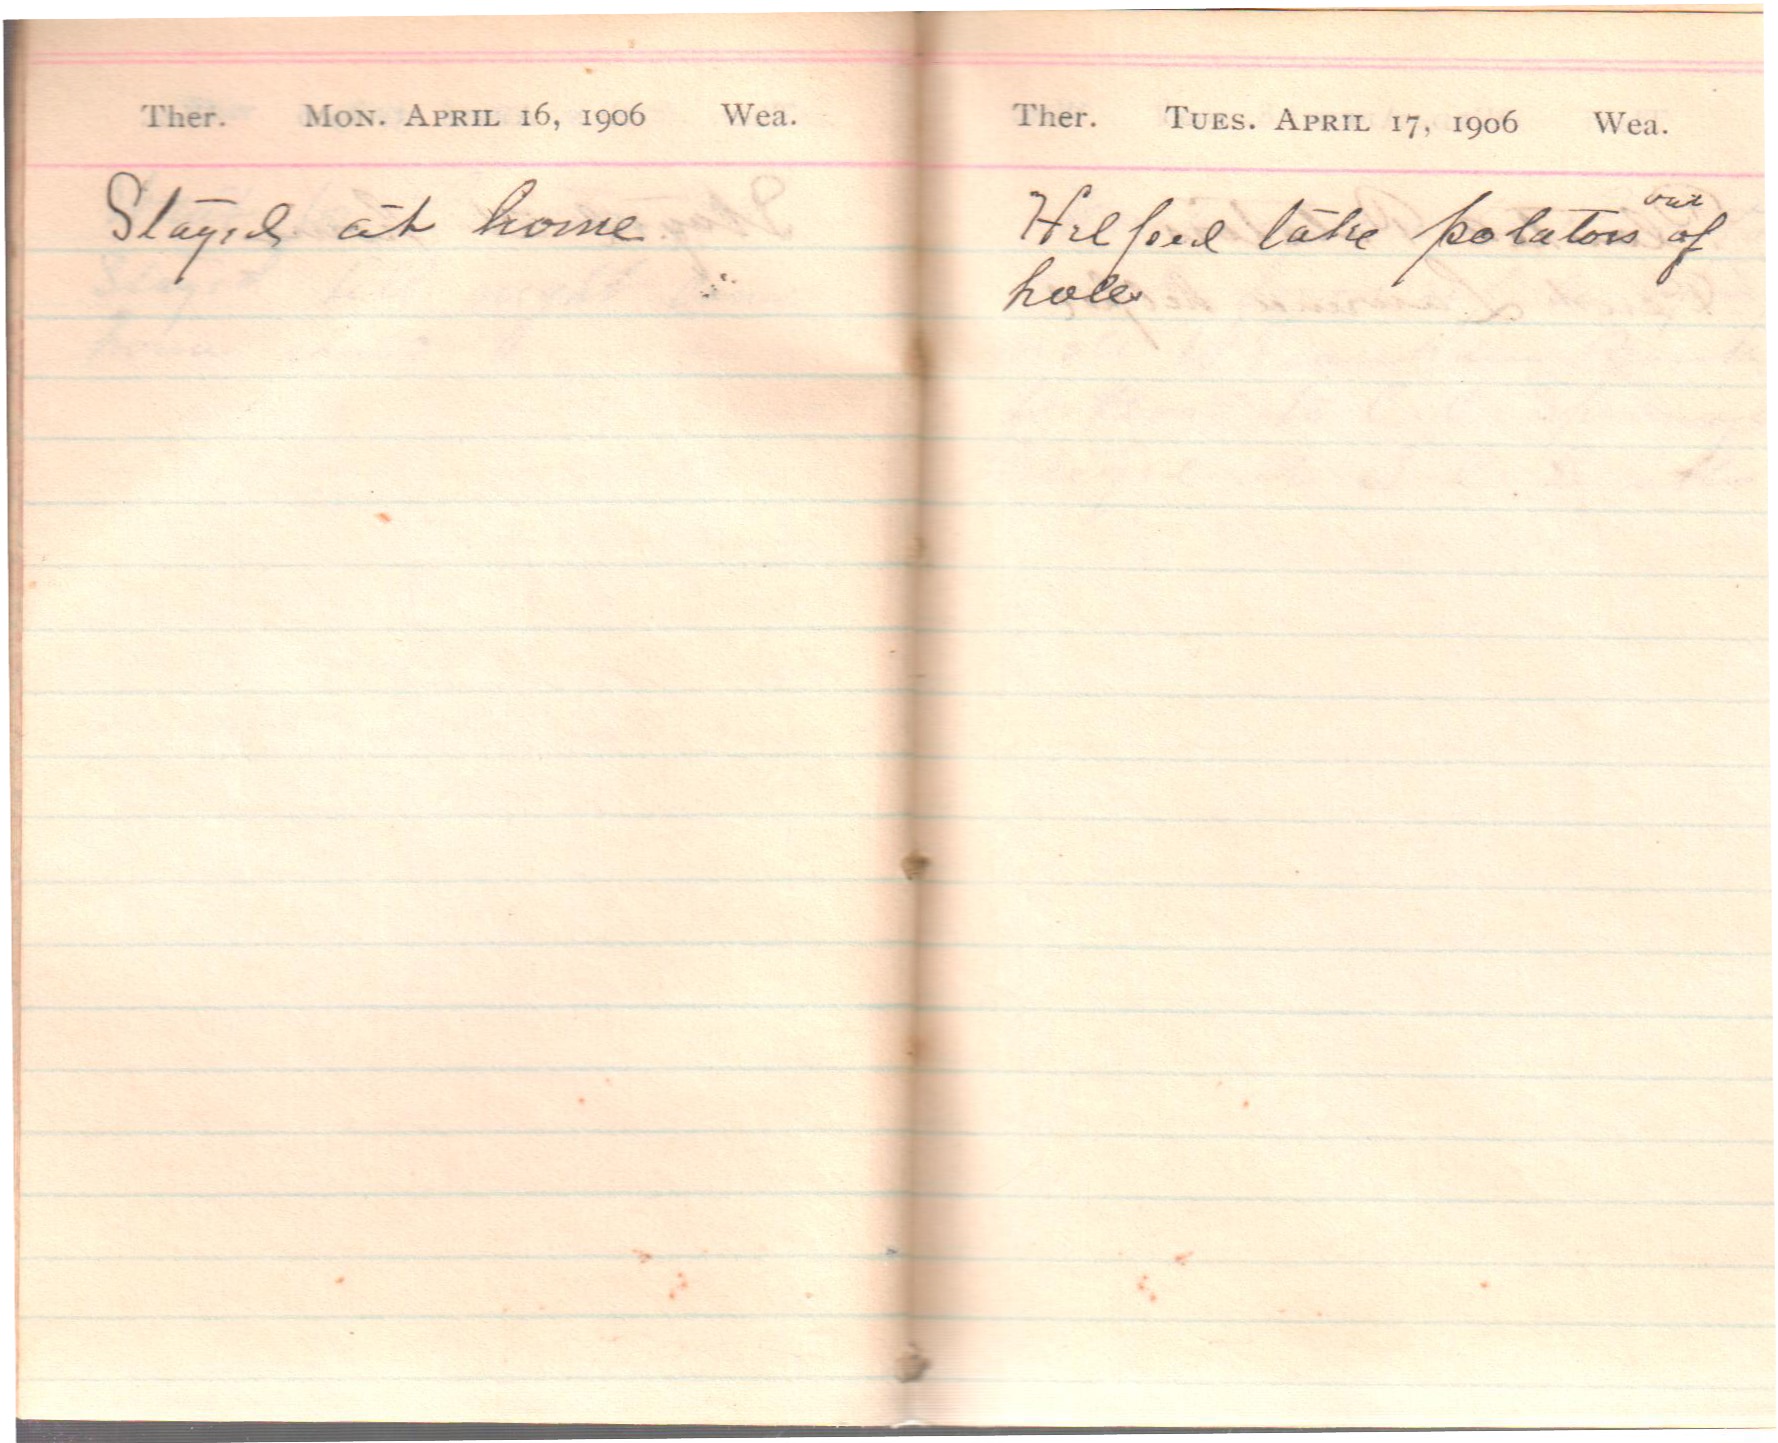 Ther. Mon. April 16, 1906 Wea.
Stayed at home
Ther. Tues. April 17, 1906 Wea.
Helped take potatoes out of
hole